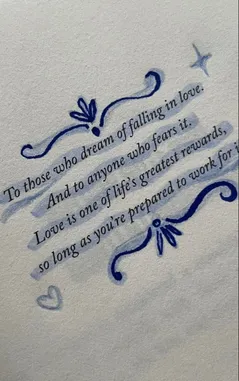 To those who dream of falling in love.
And to anyone who fears it.
Love is one of life's greatest rewards,
so long as you're prepared to work for